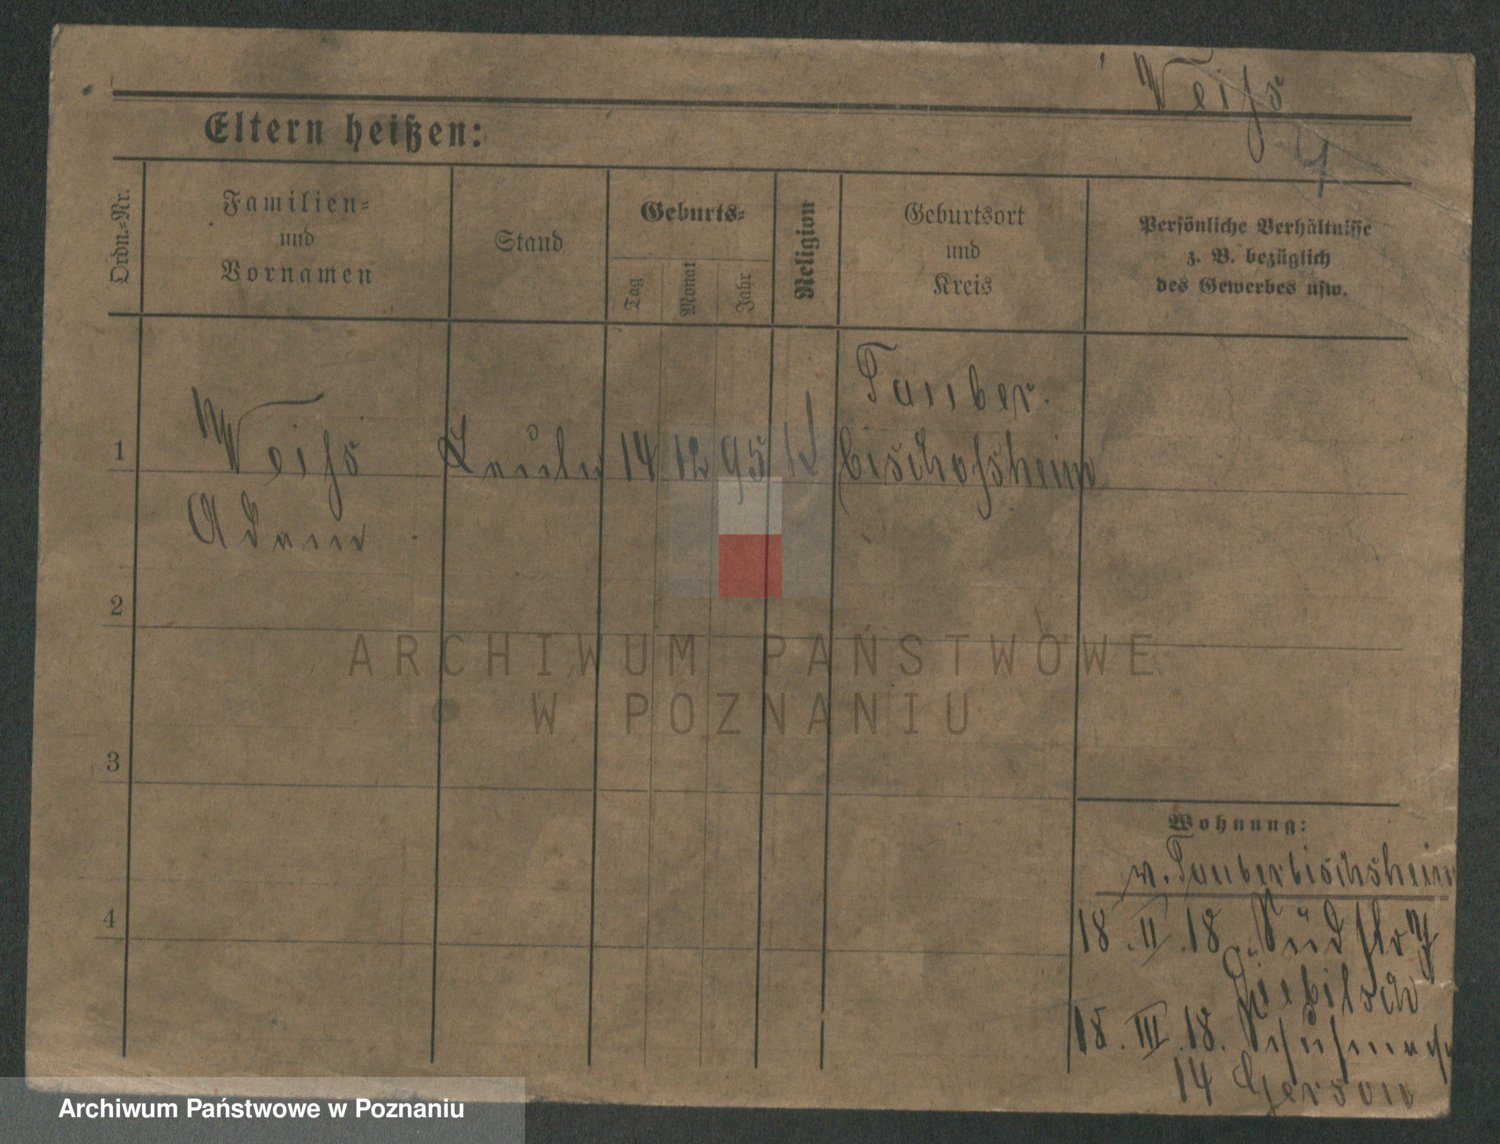 Weiß
4
Eltern heißen:
Ordn.-Nr.
Familien-
und
Vornamen
Stand
Geburts-
Tag
Monat
Jahr
Religion
Geburtsort
und
Kreis
Persönliche Verhältnisse
z. B. bezüglich
des Gewerbes usw.
1
Weiß
Adam
14 12 95
Tauber.
bischofsheim
2
3
4
Wohnung:
v. Tauberbischsheim
18. II. 18.
18. III. 18.
14 Gerson
ARCHIWUM PAŃSTWOWE
W POZNANIU
Archiwum Państwowe w Poznaniu